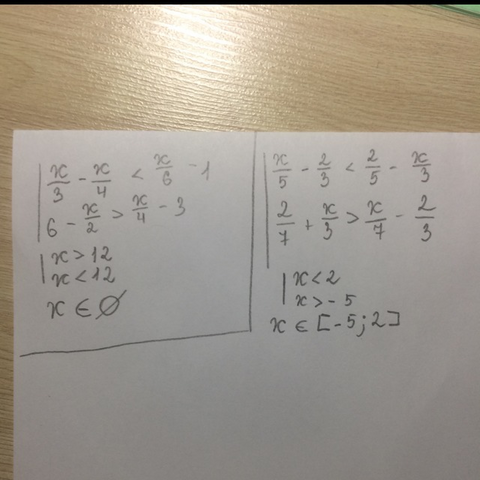 x/3 - x/4 < x/6 - 1
6 - x/2 > x/4 - 3
x > 12
x < 12
x ∈ ∅
x/5 - 2/3 < 2/5 - x/3
2/7 + x/3 > x/7 - 2/3
x < 2
x > - 5
x ∈ [-5; 2]